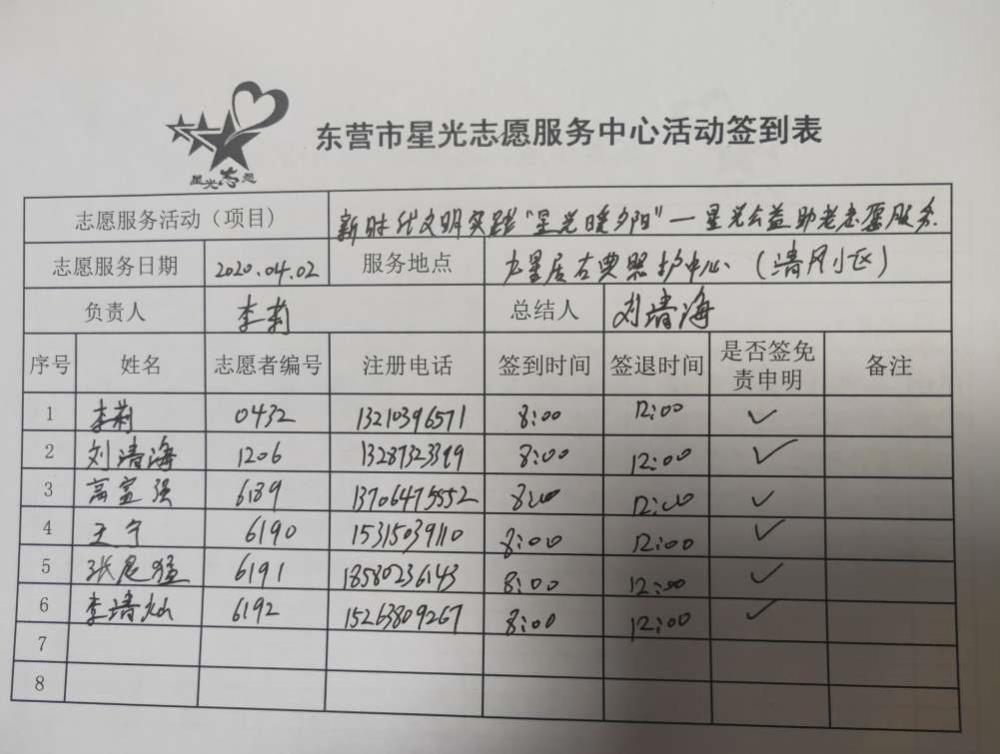 星光志愿
东营市星光志愿服务中心活动签到表
志愿服务活动（项目） 新时代文明实践“星光暖夕阳”—星光公益助老志愿服务.
志愿服务日期 2020.04.02 服务地点 居古典照护中心（清风小区）
负责人 李莉 总结人 刘清海
序号 姓名 志愿者编号 注册电话 签到时间 签退时间 是否签免责申明 备注
1 李莉 0432 13210396571 8:00 12:00 ✓
2 刘清海 1206 13287323399 8:00 12:00 ✓
3 高富强 6189 13706475552 8:00 12:00 ✓
4 王宁 6190 15315039110 8:00 12:00 ✓
5 张 猛 6191 18580236143 8:00 12:00 ✓
6 李靖灿 6192 15263809267 8:00 12:00 ✓
7
8